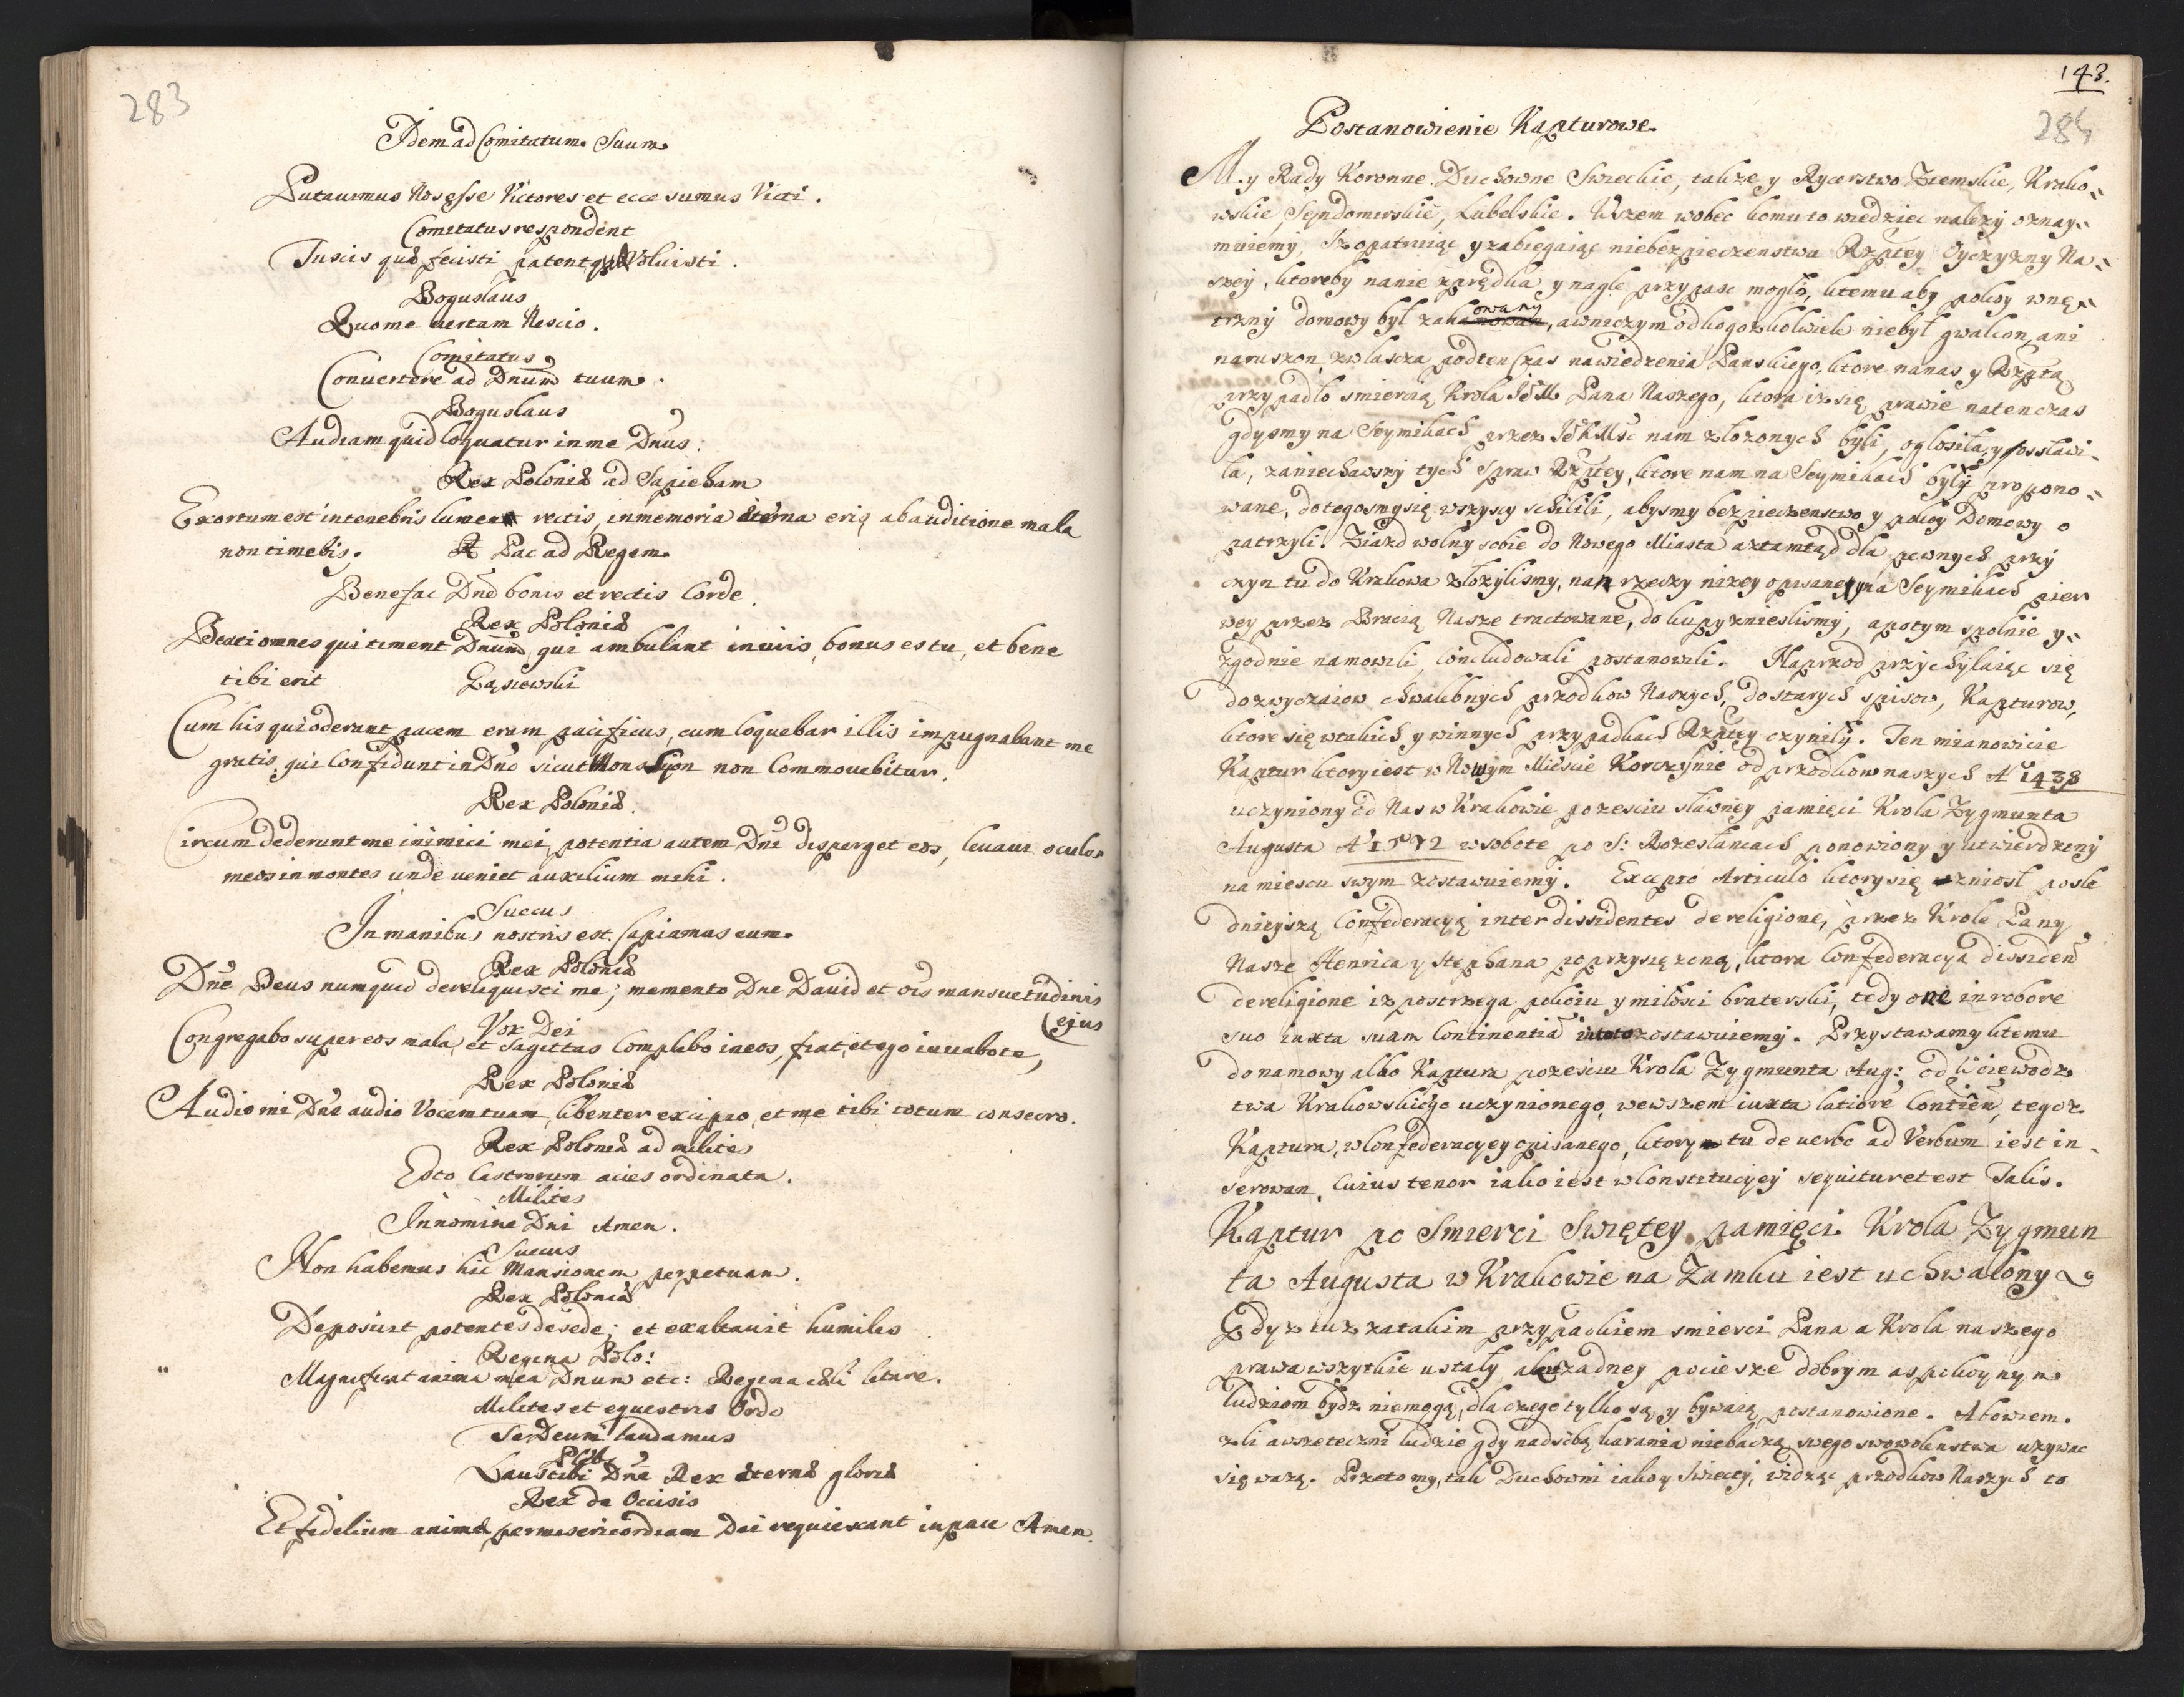 283
Idem ad Comitatum Suum
Putauimus Nos esse Victores et ecce sumus Victi.
Comitatus respondent
Tu scis quæ fecisti patent quæ Voluisti.
Boguslaus
Quo me uertam Nescio.
Comitatus
Conuertere ad Dnum tuum.
Boguslaus
Audiam quid loquatur in me Dnus.
Rex Poloniæ ad Sapieham
Exortum est in tenebris lumen rectis, in memoria æterna eris ab auditione mala
non timebis. Pac ad Regem
Benefac Dne bonis et rectis Corde.
Rex Poloniæ
Beati omnes qui timent Dnum, qui ambulant in uiis, bonus es tu, et bene
tibi erit Gąsiewski
Cum his qui oderant pacem eram pacificus, cum loquebar illis impugnabant me
gratis, qui Confidunt in Dno sicut Mons Syon non Commouebitur.
Rex Poloniæ.
Circum dederunt me inimici mei, potentia autem Dni disperget eos, leuaui oculos
meos in montes unde ueniet auxilium mihi.
Suecus
In manibus nostris est Capiamus eum.
Rex Poloniæ
Dne Deus numquid dereliquisti me; memento Dne Dauid et ois mansuetudinis
(ejus
Vox Dei
Congregabo super eos mala, et Sagittas Complebo in eos, fiat, et ego iuuabo te,
Rex Poloniæ
Audio mi Dne audio Vocem tuam, libenter excipio, et me tibi totum consecro.
Rex Poloniæ ad milites
Esto Castrorum acies ordinata.
Milites
In nomine Dni Amen.
Suecus
Non habemus hic Mansionem perpetuam.
Rex Poloniæ
Deposuit potentes de sede; et exaltauit humiles
Regina Polo:
Magnificat anima mea Dnum etc: Regina cæli lætare.
Milites et equestris Ordo
Te Deum laudamus
Plebs
Laus tibi Dne Rex æternæ gloriæ
Rex de Occisis
Et fidelium animæ per misericordiam Dei requiescant in pace Amen.
143.
284
Postanowienie Kapturowe
My Rady Koronne Duchowne Swieckie, takze y Rycerstwo Ziemskie, Krako-
wskie, Sęndomirskie, Lubelskie. Wszem wobec komu to wiedziec nalezy oznay-
muiemy, Iz opatruiąc y zabiegaiąc niebezpieczenstwu Rzptey Oyczyzny Na-
szey, ktoreby na nie z prędka y nagle przypasc mogło, ktemu aby pokoy wnę-
trzny domowy był zahamowany, a w niczym od kogozkolwiek niebył gwałcon, ani
naruszon, zwlascza pod ten Czas nawiedzenia Panskiego, ktore na nas y Rzptą
przypadło smiercią Krola JeM Pana Naszego, ktora iz się prawie natenczas
gdysmy na Seymikach przez JeKMsc nam złozonych byli, ogłosiła, y rossławi-
ła, zaniechawszy tych spraw Rzptey, ktore nam na Seymikach były propono-
wane, do tegosmy się wszyscy schilili, abysmy bezpieczenstwo y pokoy Domowy o
patrzyli. Ziazd wolny sobie do Nowego Miasta a ztamtąd dla pewnych przy
czyn tu do Krakowa złozylismy, na rzeczy nizey opisane y na Seymikach pier
wey przez Bracią Nasze tractowane, do kupy zniesliśmy, a potym spolnie y-
zgodnie namowili, Concludowali postanowili. Naprzod przychylaiąc się
do zwyczaiow chwalebnych przodkow Naszych, do starych spisow, Kapturow,
ktore się w takich y w innych przypadkach Rzptey czyniły. Ten mianowicie
Kaptur ktory iest w Nowym Miescie Korczynie od przodkow naszych Aº 1438
uczyniony od Nas w Krakowie po zesciu sławney pamięci Krola Zygmunta
Augusta Aº 1572 w sobote po S: Rozesłaniach ponowiony y utwierdzony
na miescu swym zostawuiemy. Excepto Articulo ktory się zniosł posle
dnieyszą Confederacyą inter dissidentes de religione, przez Krole Pany
Nasze Henrica y Stephana poprzysięzoną, ktora Confederacya dissiden
de religione iz postrzega pokoiu y miłosci braterski, tedy one in robore
suo iuxta suam Continentia in toto zostawuiemy. Przystawamy ktemu
do namowy albo Kaptura po zesciu Krola Zygmunta Aug: od Woiewodz
twa Krakowskiego uczynionego, wewszem iuxta latiore Contin, tegoz
Kaptura, w Confederacyey opisanego, ktory tu de uerbo ad Verbum iest in-
serowan, Cuius tenor iako iest w Constitucyey sequitur et est Talis.
Kaptur po Smierci Swiętey pamięci Krola Zygmun
ta Augusta w Krakowie na Zamku iest uchwalony
Gdyz iuz za takim przypadkiem smierci Pana a Krola naszego
prawa wszytkie ustały zadney pociesze dobrym a spokoynym
ludziom bydz niemogą, dla czego tylko są y bywaią postanowione. Abowiem
zli a wszeteczni ludzie gdy nad sobą karania niebaczą swego swowolenstwa uzywac
się wazą. Przeto my, tak Duchowni iako y Swieccy, widząc przodkow Naszych to